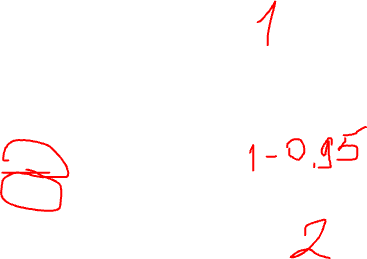 1
1-0.95
2